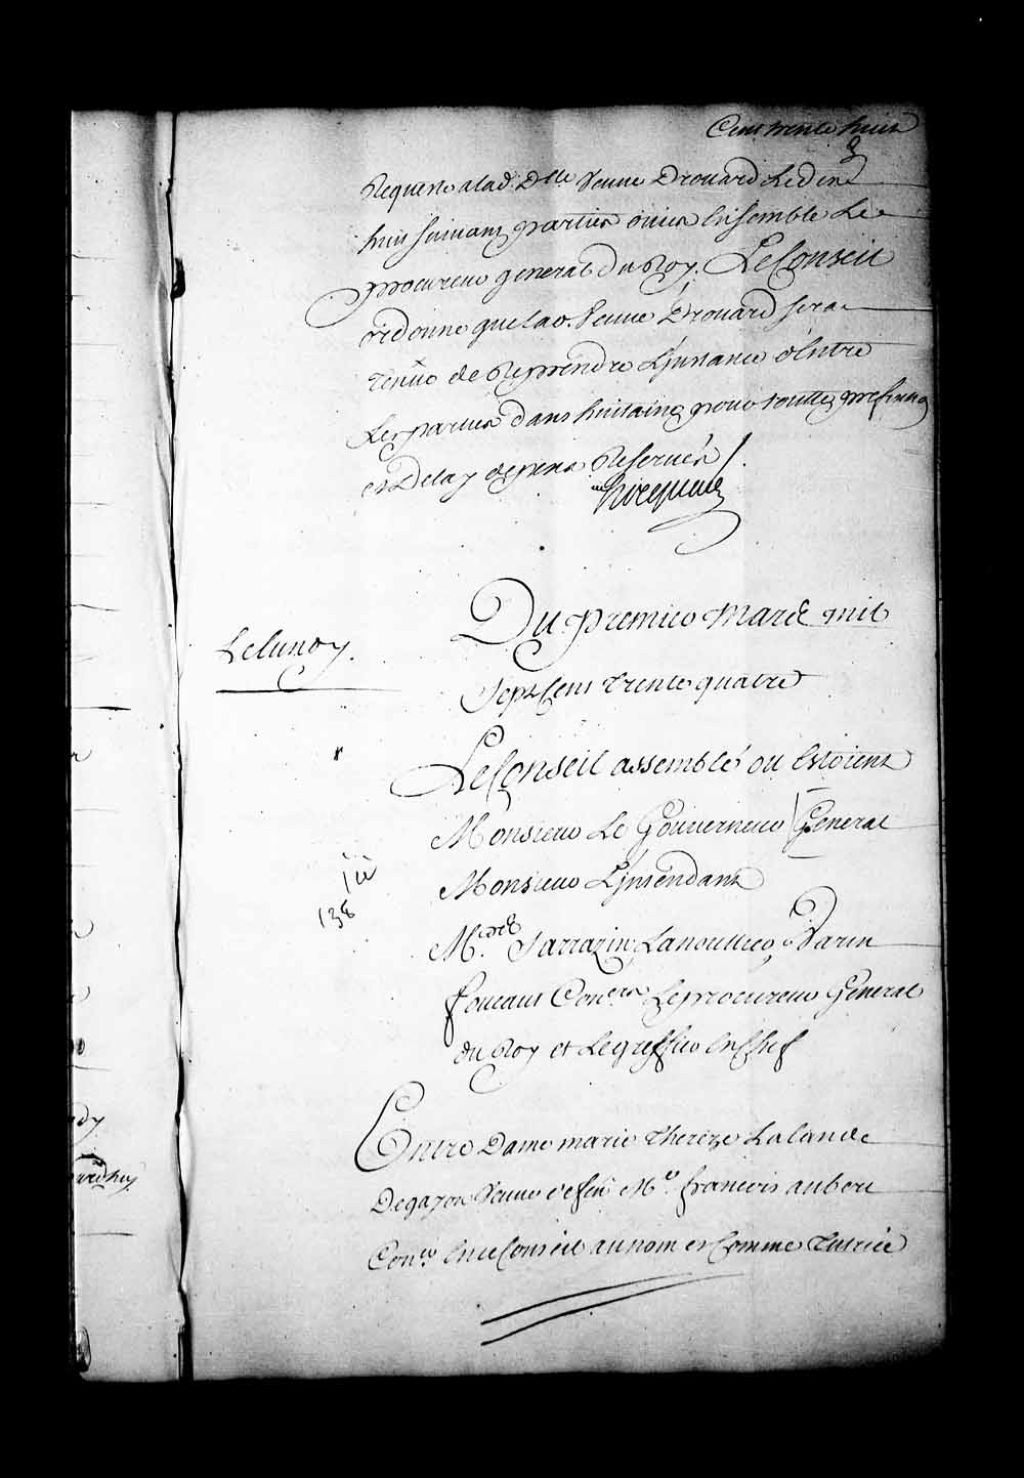 Cent trente huit
Requeste a lad. Dlle Veuve Drouard Led.
huit suivant parties ouies Ensemble Le
procureur general du Roy. Le Conseil
ordonne que lad. Veuve Drouard sera
tenue de Reprendre L'jnstance d'Entre
Les parties dans huitaine pour toutte prefixion
et Delay depens Reservés /.
hocquart
Du premier Mars mil
Sept Cent trente quatre
Le lundy.
Le Conseil assemblé ou Estoient
Monsieur Le Gouverneur General
Monsieur L'jntendant
ici
138
Mes. Sarrazin, Lanoullier, Varin
foucaut Coners. Le procureur General
du Roy et Le greffier En Chef
Entre Dame marie Thereze Lalande
Degayon Veuve de feu Me. francois aubert
Coner. En ce Conseil au nom et Comme Tutrice